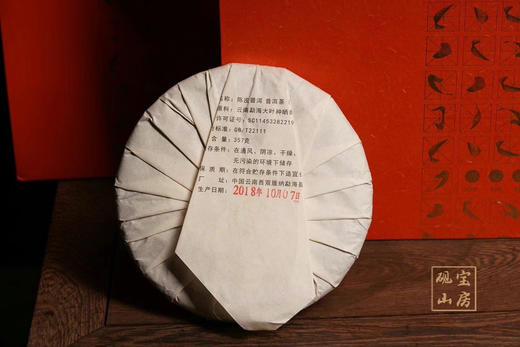 名称：陈皮普洱 普洱茶
原料：云南勐海大叶种晒
许可证号：SC11453282219
标准：GB/T22111
含量：357克
存条件：在通风、阴凉、干燥、
无污染的环境下储存
保质期：在符合贮存条件下适宜
厂址：中国云南西双版纳勐海县
生产日期：2018年10月07日
砚宝
山房